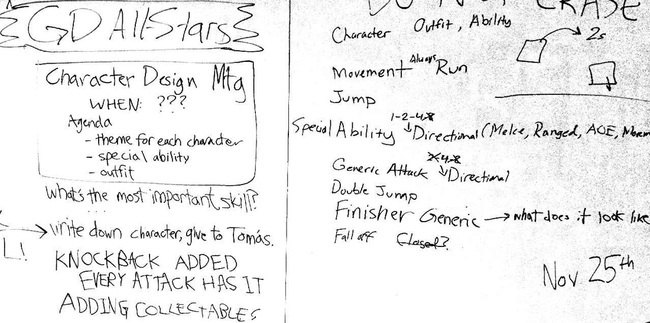 GD AllStars
Character Design Mtg
WHEN: ???
Agenda
- theme for each character
- special ability
- outfit
What's the most important skill?
→ write down character, give to Tomás.
L!
KNOCKBACK ADDED
EVERY ATTACK HAS IT
ADDING COLLECTABLES
DO NOT ERASE
Character Outfit, Ability
2s
Movement Always Run
Jump
1-2-4-8
Special Ability Directional (Melee, Ranged, AOE, Movem
4-8
Generic Attack Directional
Double Jump
Finisher Generic → what does it look like
Fall off Closed?
Nov 25th